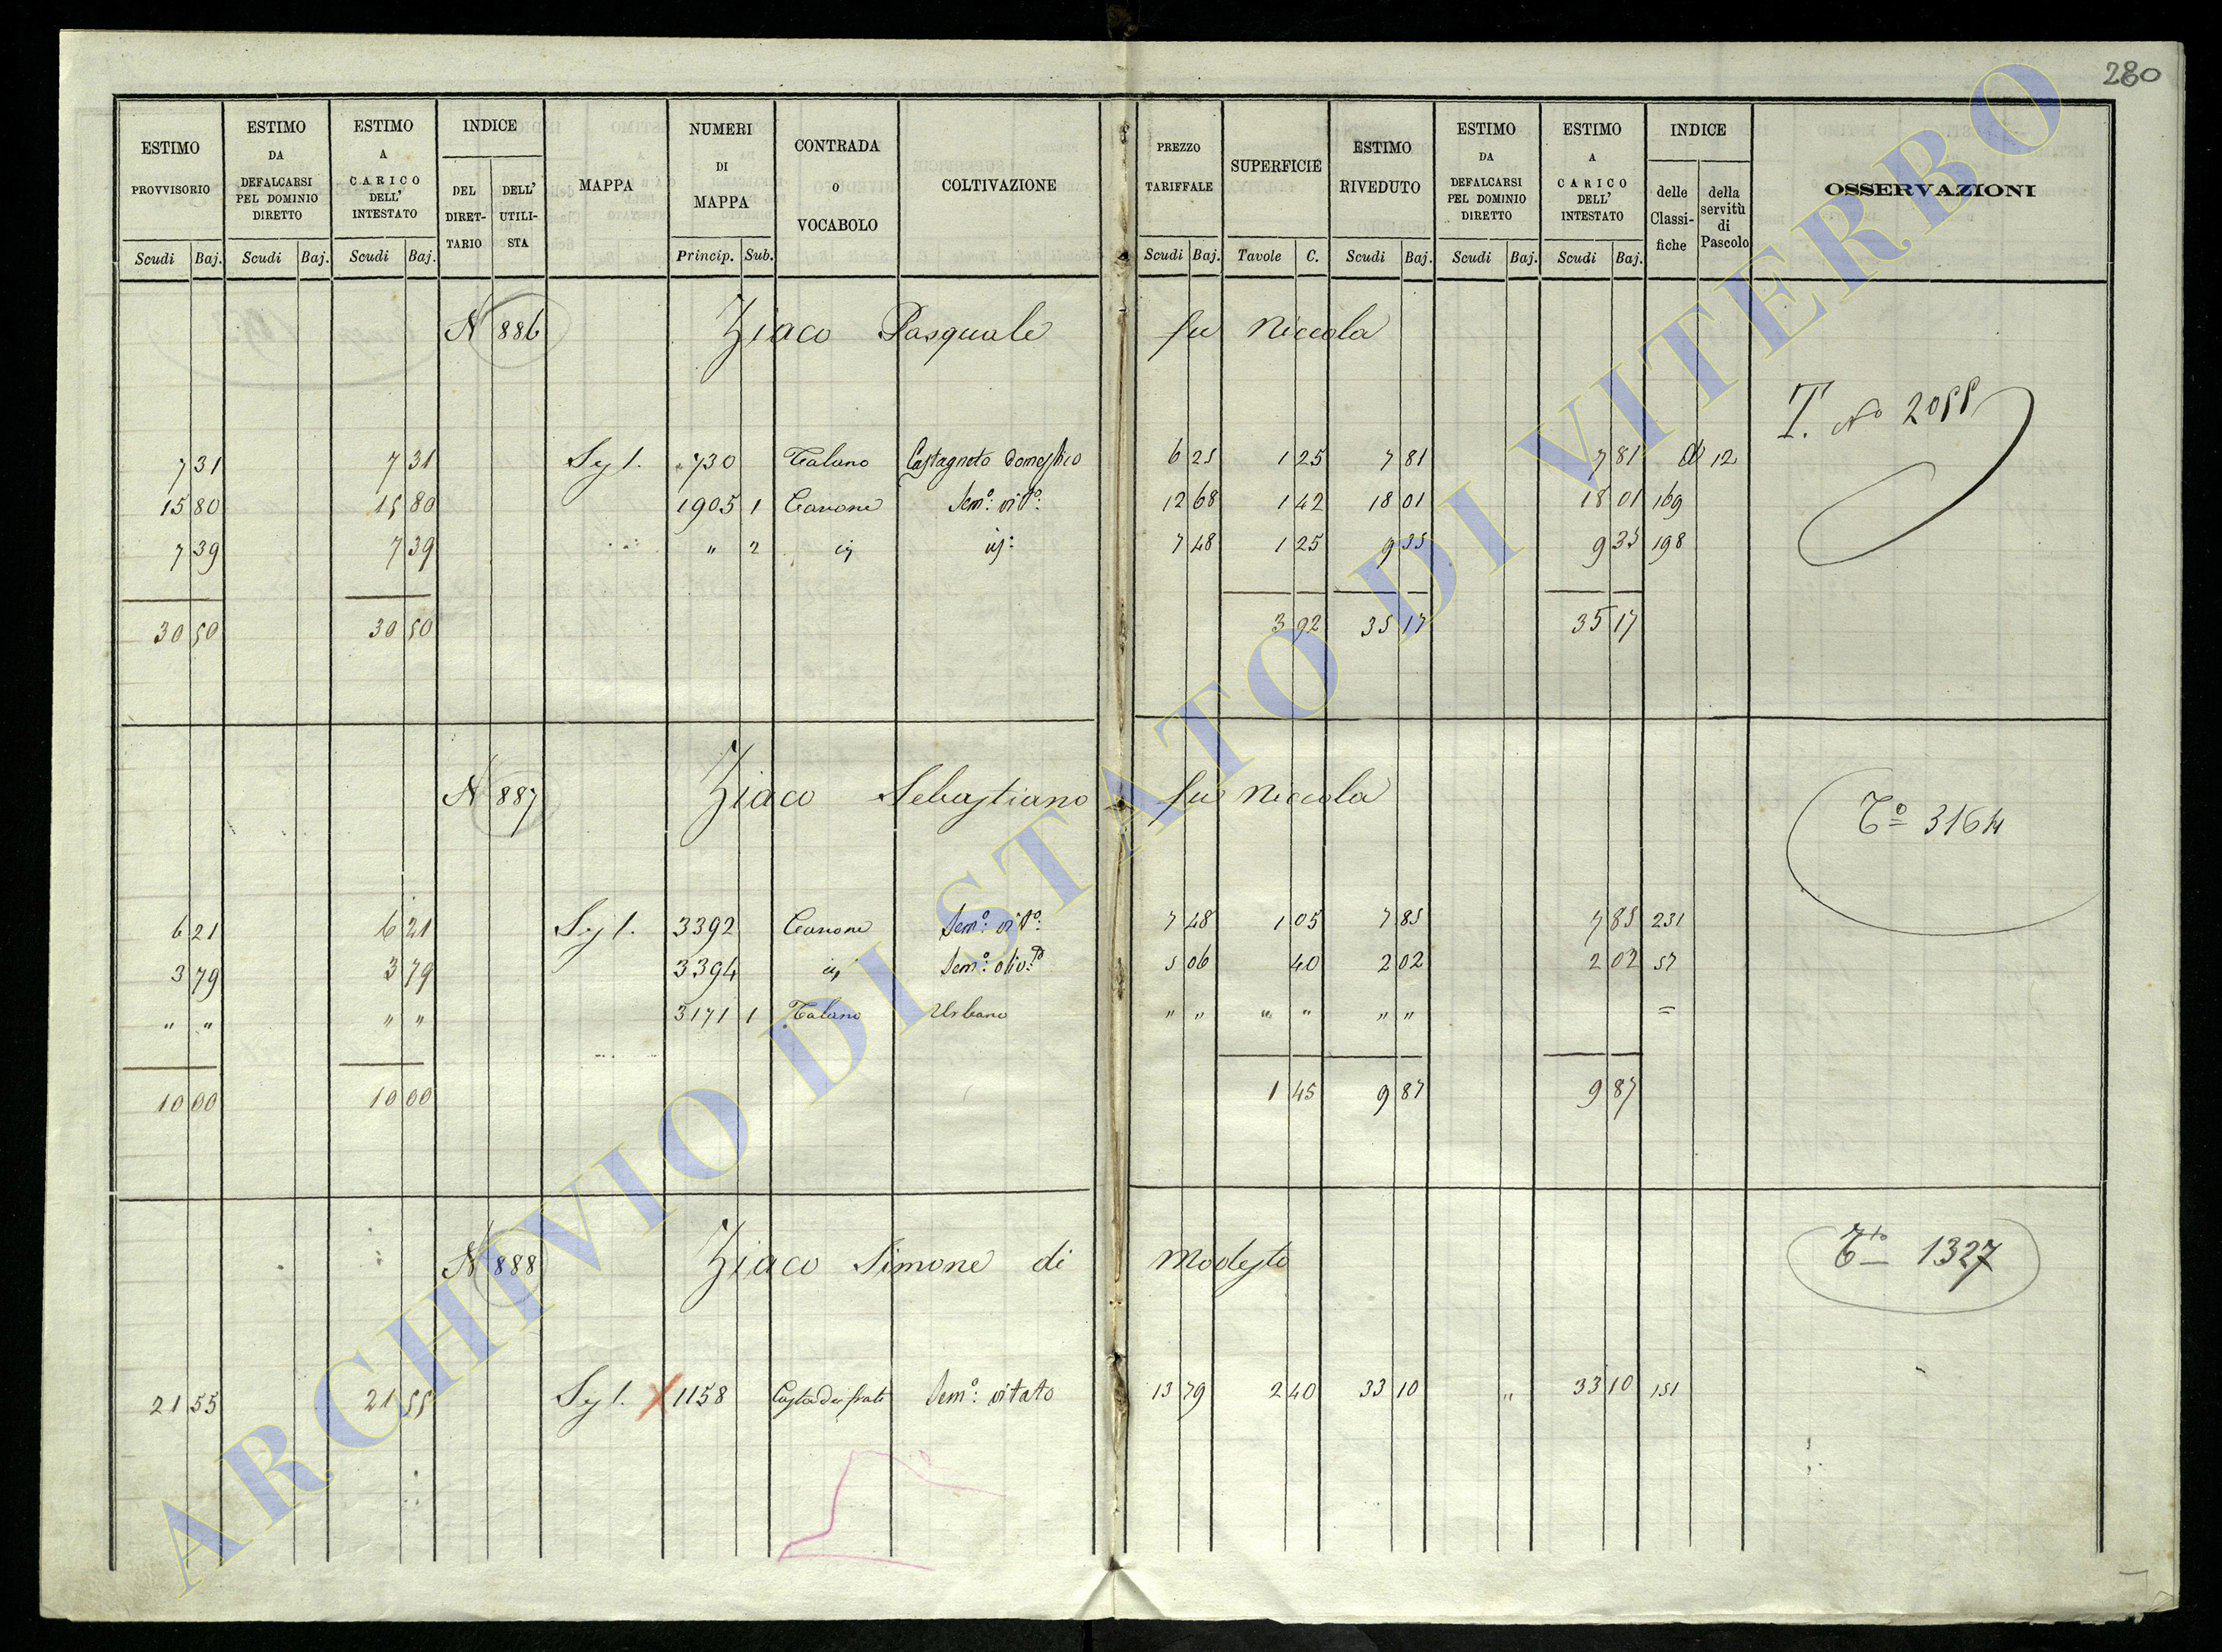 280
ESTIMO PROVVISORIO Scudi Baj. | ESTIMO DA DEFALCARSI PEL DOMINIO DIRETTO Scudi Baj. | ESTIMO A CARICO DELL' INTESTATO Scudi Baj. | INDICE DEL DIRET-TARIO DELL' UTILI-STA | MAPPA | NUMERI DI MAPPA Princip. Sub. | CONTRADA O VOCABOLO | COLTIVAZIONE | PREZZO TARIFFALE Scudi Baj. | SUPERFICIE Tavole C. | ESTIMO RIVEDUTO Scudi Baj. | ESTIMO DA DEFALCARSI PEL DOMINIO DIRETTO Scudi Baj. | ESTIMO A CARICO DELL' INTESTATO Scudi Baj. | INDICE delle Classi-fiche della servitù di Pascolo | OSSERVAZIONI
N 886 Ziaco Pasquale fu Niccola
T. No 2055
7 31 7 31 730 Talano Castagneto domestico 6 25 1 25 7 81 7 81 12
15 80 15 80 1905 1 Canone Sem°: vit°: 12 68 1 42 18 01 18 01 169
7 39 7 39 " 2 7 48 1 25 9 35 9 35 198
30 50 30 50 3 92 35 17 35 17
N 887 Ziaco Sebastiano fu Niccola
T° 3164
6 21 6 21 3392 Canone Sem°: vit°: 7 48 1 05 7 85 7 85 231
3 79 3 79 3394 Sem°: oliv:to 5 06 40 2 02 2 02 57
" " " " 3171 1 Talano Urbano " " " " " " =
10 00 10 00 1 45 9 87 9 87
N 888 Ziaco Simone di Modesto
Tto 1327
21 55 21 55 1158 Costa dei frati Sem°: vitato 13 79 2 40 33 10 " 33 10 151
ARCHIVIO DI STATO DI VITERBO